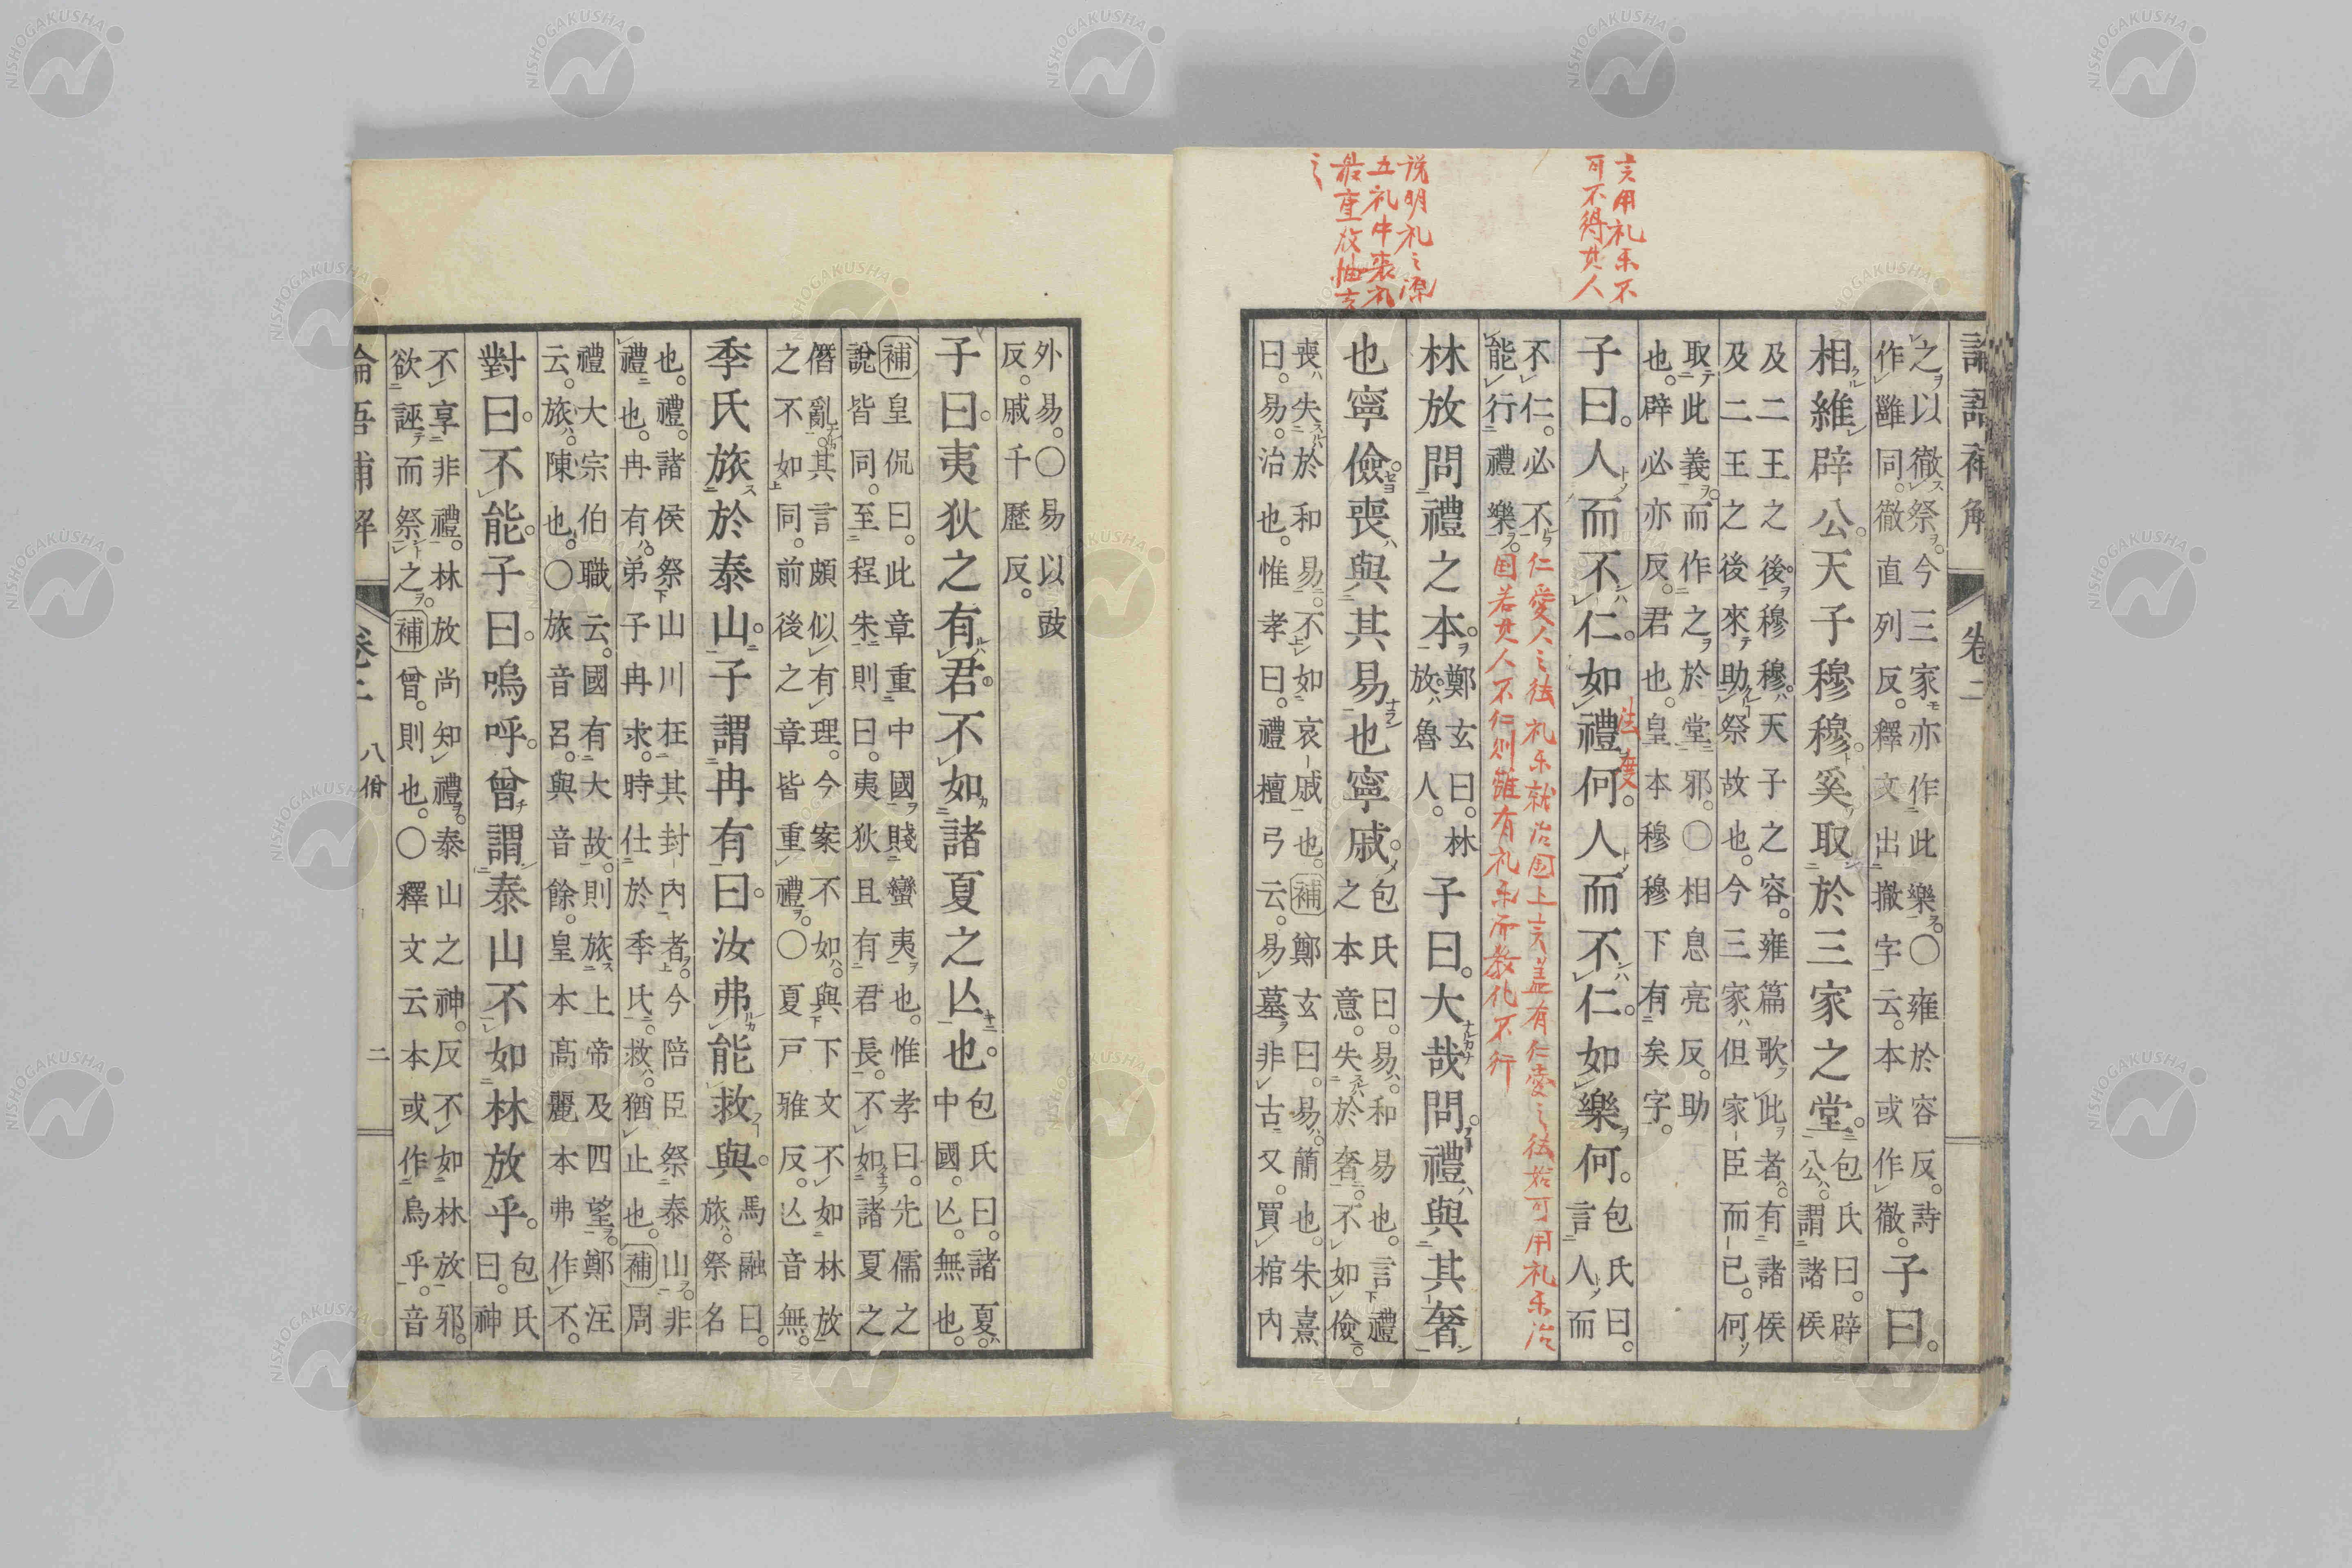 言用礼乐不
可不得其人
说明礼之源
五礼中丧礼
最重故抽言
之
論語補解 卷二
之以徹祭今三家亦作此樂〇雍於容反詩
作雝同徹直列反釋文出撤字云本或作徹
子曰
相維辟公天子穆穆奚取於三家之堂
包氏曰辟
公謂諸侯
及二王之後穆穆天子之容雍篇歌此者有諸侯
及二王之後來助祭故也今三家但家臣而已何
取此義而作之於堂邪〇相息亮反助
也辟必亦反君也皇本穆穆下有矣字
子曰人而不仁如禮何人而不仁如樂何
法度
包氏曰
言人而
不仁必不
能行禮樂
仁愛人之法礼乐就治国上言盖有仁愛之法始可用礼乐治
国若其人不仁则虽有礼乐而教化不行
林放問禮之本
鄭玄曰林
放魯人
子曰大哉問禮與其奢
也寧儉喪與其易也寧戚
包氏曰易和易也言禮
之本意失於奢不如儉
喪失於和易不如哀戚也補鄭玄曰易簡也朱熹
曰易治也惟孝曰禮檀弓云易墓非古又買棺內
外易〇易以豉
反戚千歷反
子曰夷狄之有君不如諸夏之亾也
包氏曰諸夏
中國亾無也
補皇侃曰此章重中國賤蠻夷也惟孝曰先儒之
說皆同至程朱則曰夷狄且有君長不如諸夏之
僭亂其言頗似有理今案不如與下文不如林放
之不如同前後之章皆重禮〇夏戸雅反亾音無
季氏旅於泰山子謂冉有曰汝弗能救與
馬融曰
旅祭名
也禮諸侯祭山川在其封內者今陪臣祭泰山非
禮也冉有弟子冉求時仕於季氏救猶止也補周
禮大宗伯職云國有大故則旅上帝及四望鄭注
云旅陳也〇旅音呂與音餘皇本高麗本弗作不
對曰不能子曰嗚呼曾謂泰山不如林放乎
包氏
曰神
不享非禮林放尚知禮泰山之神反不如林放邪
欲誣而祭之補曾則也〇釋文云本或作烏乎音
論吾補解 卷二 八佾 二